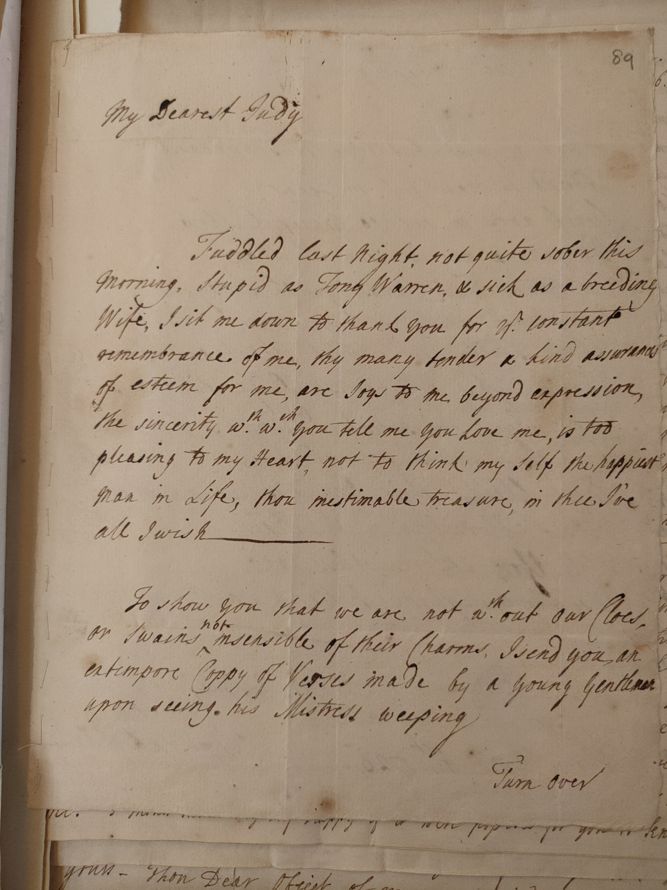 89
My Dearest Judy
Fuddled last Night, not quite sober this
Morning, Stupid as Tony Warren, & sick as a breeding
Wife, I sit me down to thank you for yr. constant
remembrance of me, thy many tender & kind assurances
of esteem for me, are Joys to me beyond expression,
the sincerity wth. wch. you tell me you Love me, is too
pleasing to my Heart, not to think my Self the happiest
Man in Life, thou inestimable treasure, in thee I've
all I wish
To show you that we are not wth.out our Cloes,
or Swains not insensible of their Charms. I send you an
extempore Coppy of Verses made by a young Gentleman
upon seeing his Mistress weeping
Turn over
yours - Thou Dear Object of